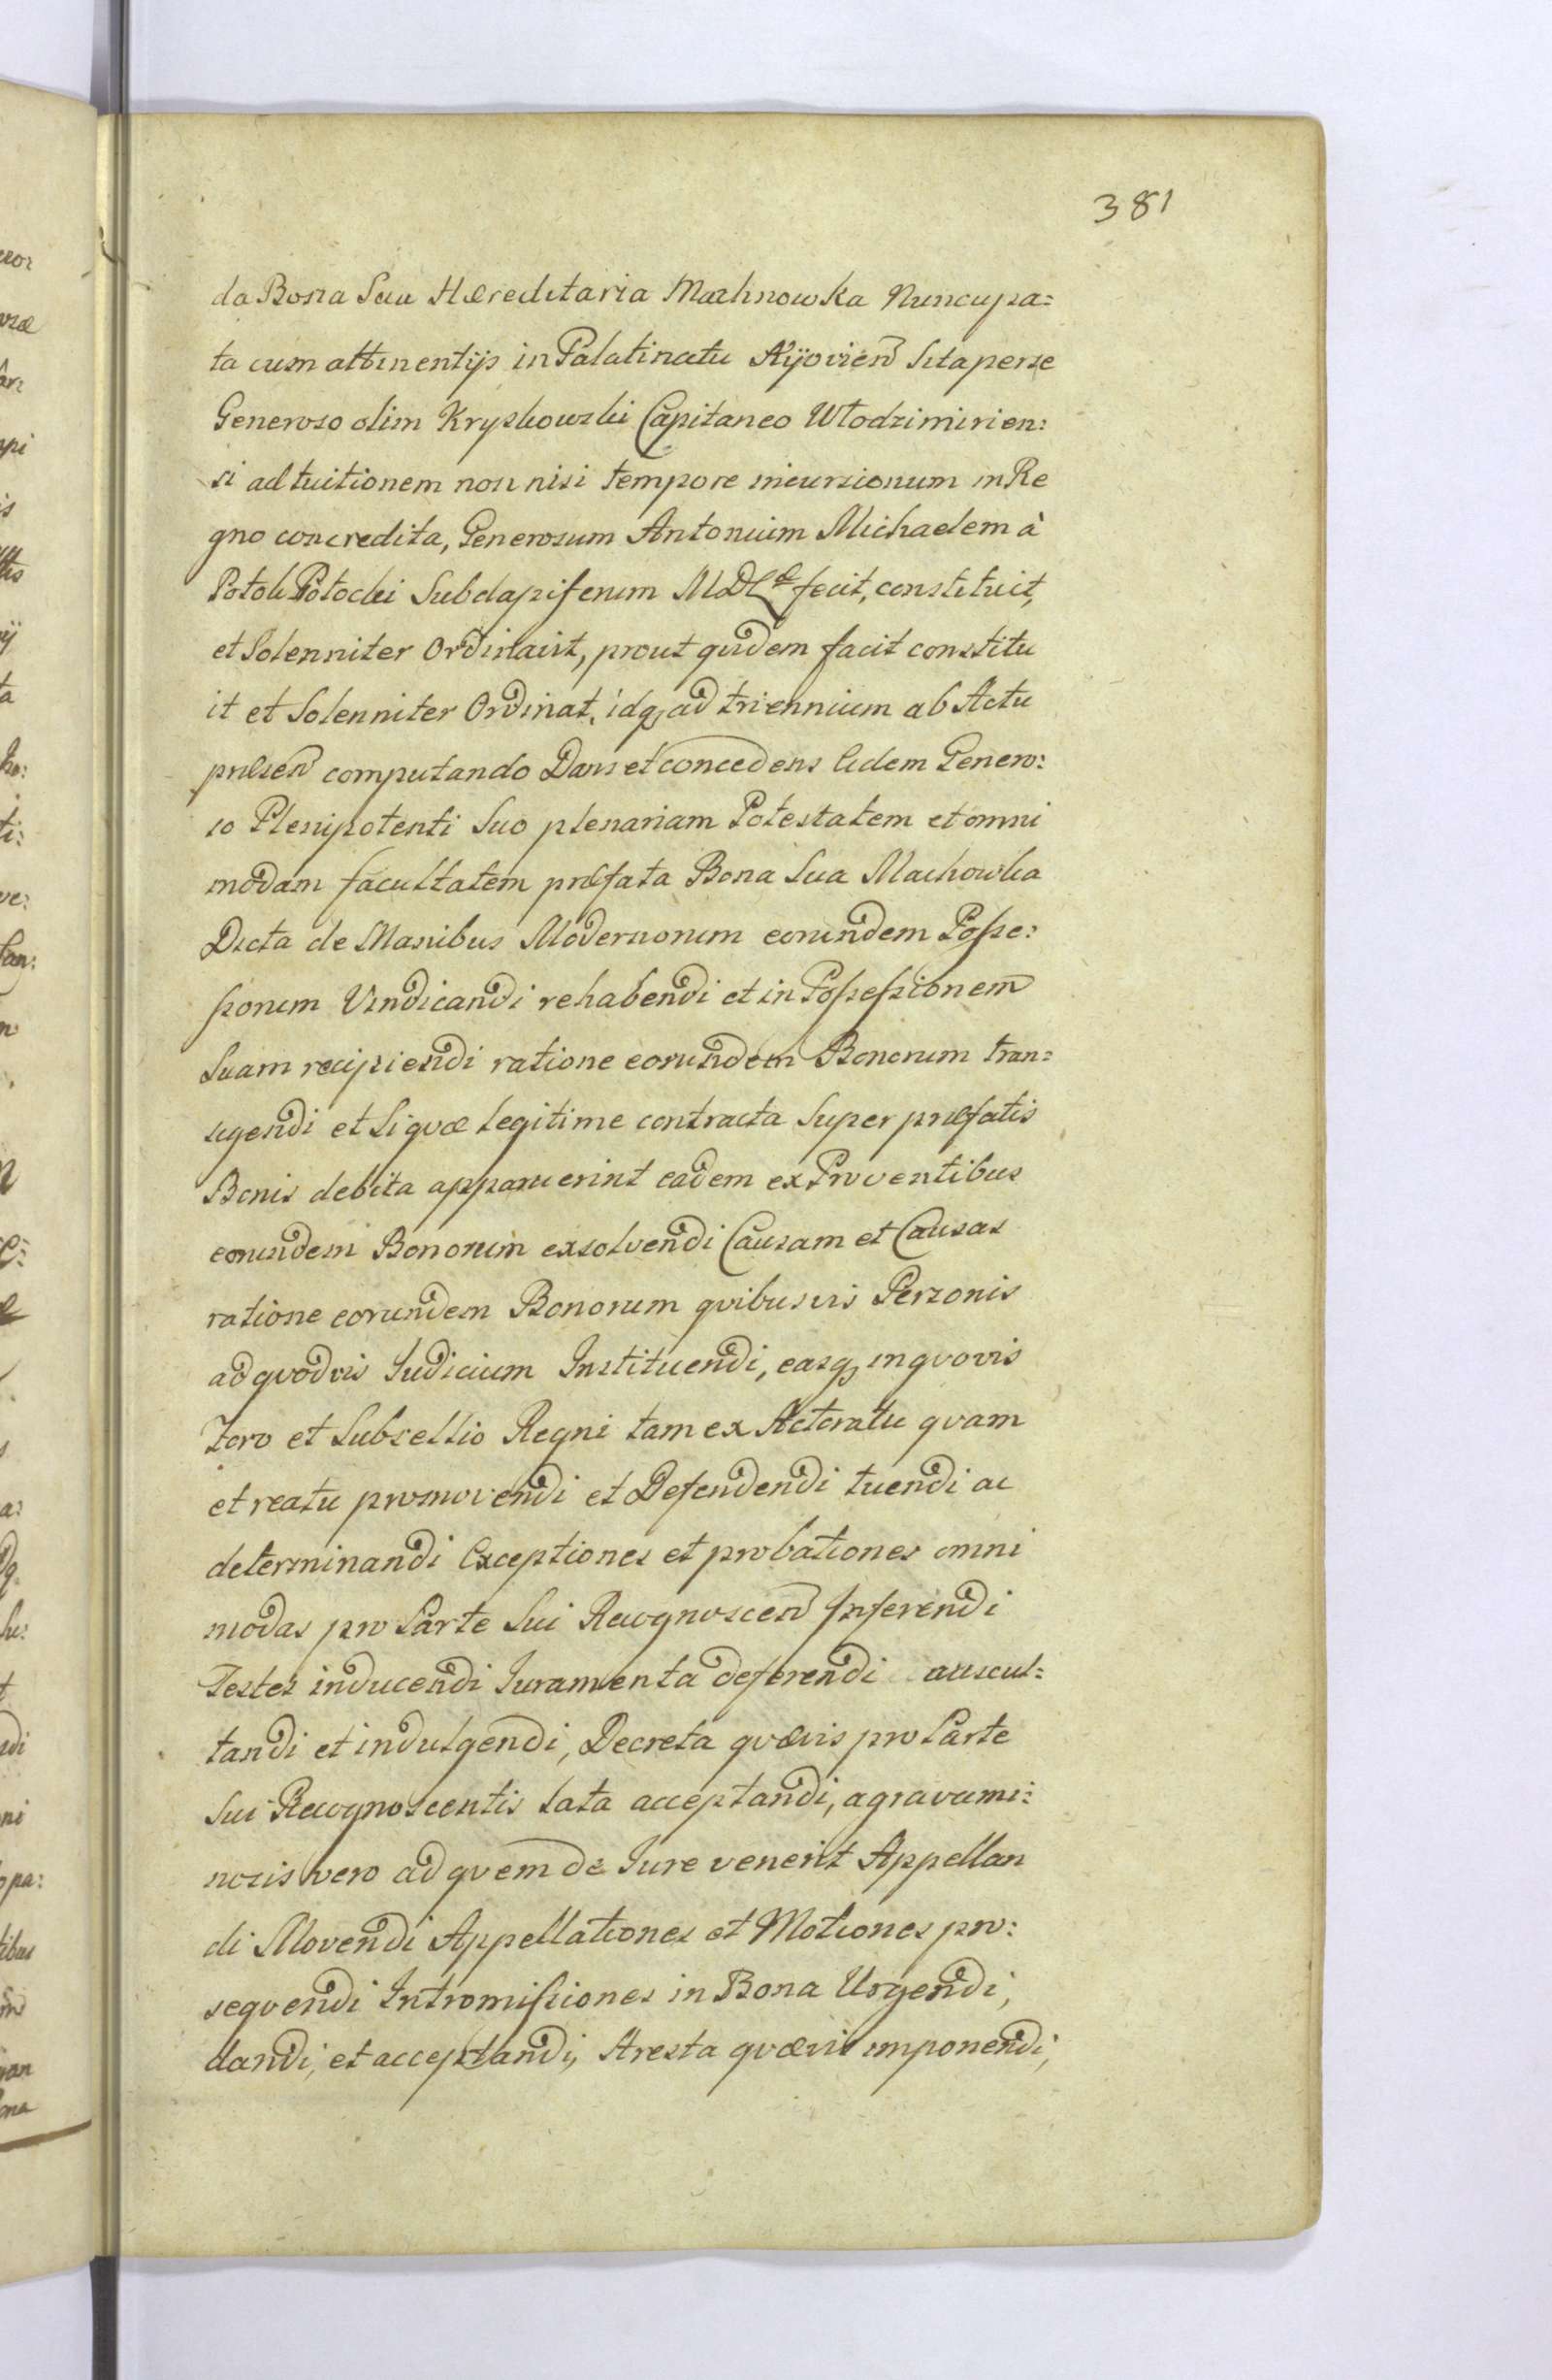 381
da Bona Sua Hæreditaria Machnowka Nuncupa=
ta cum attinentijs in Palatinatu Kijovien Sita per se
Generoso olim Kryszkowski Capitaneo Włodzimirien:
si ad tuitionem non nisi tempore incursionum in Re
gno concredita, Generosum Antonium Michaelem à
Potok Potocki Subdapiferum MDL fecit, constituit,
et Solenniter Ordinavit, prout quidem facit constitu
it et Solenniter Ordinat, idq ad triennium ab Actu
præsen computando Dans et concedens Eidem Genero:
so Plenipotenti Suo plenariam Potestatem et omni
modam facultatem præfata Bona Sua Machowka
Dicta de Manibus Modernorum eorundem Posse:
ssorum Vindicandi rehabendi et in Possessionem
Suam recipiendi ratione eorundem Bonorum tran=
sigendi et Si qvæ legitime contracta Super præfatis
Bonis debita apparuerint eadem ex Proventibus
eorundem Bonorum exsolvendi Causam et Causas
ratione eorundem Bonorum qvibusvis Personis
ad qvodvis Iudicium Instituendi, easq in qvovis
Foro et Subsellio Regni tam ex Actoratu qvam
et reatu promovendi et Defendendi tuendi ac
determinandi Exceptiones et probationes omni
modas pro Parte Sui Recognoscen Inferendi
Testes inducendi Iuramenta deferendi auscul=
tandi et indulgendi, Decreta qvævis pro Parte
Sui Recognoscentis lata acceptandi, agravami:
nosis vero ad qvem de Iure venerit Appellan
di Movendi Appellationes et Motiones pro:
seqvendi Intromissiones in Bona Urgendi,
dandi, et acceptandi, Aresta qvævis imponendi,